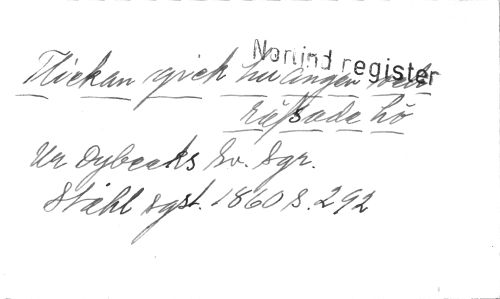 Norlind register
Flickan gick på ängen och
räfsade hö
Ur Dybecks Sv. Sgr.
Ståhl sgst. 1860 s. 292